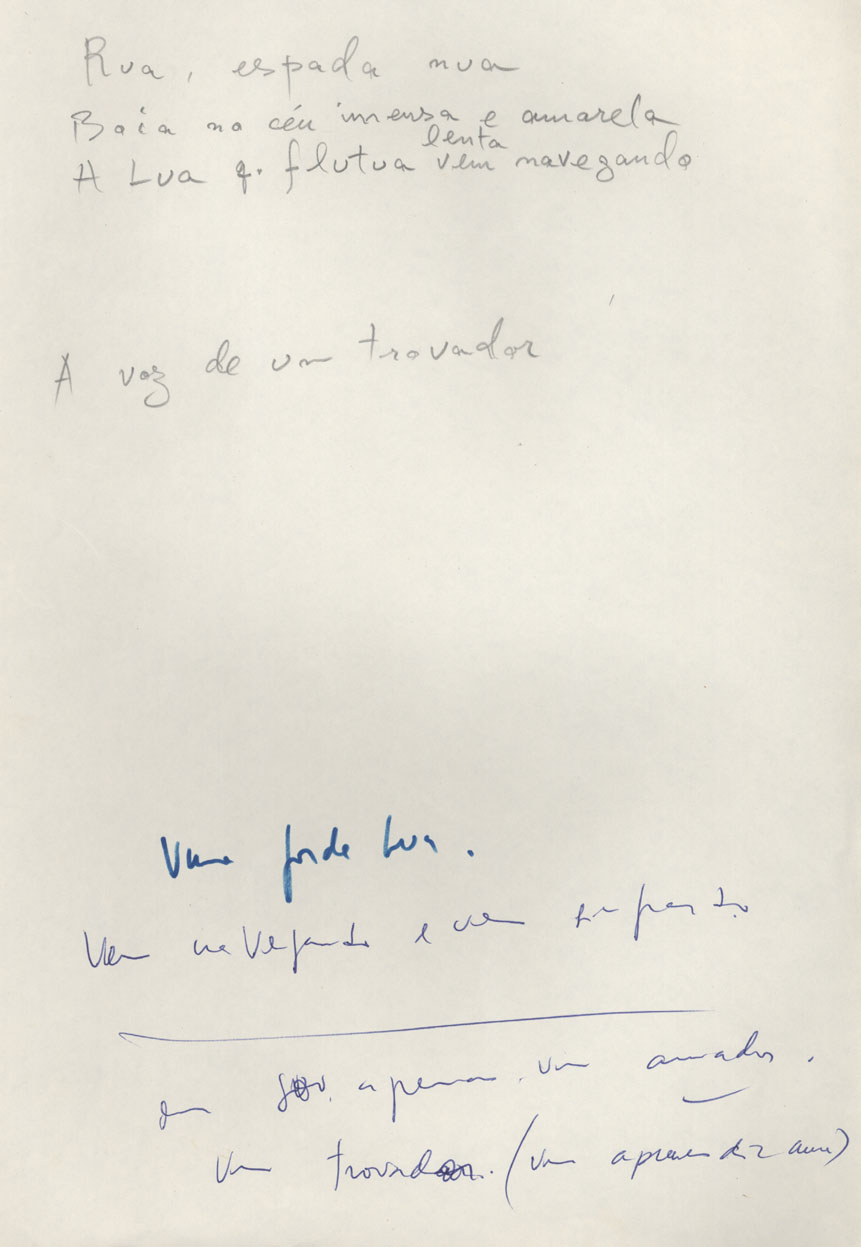 Rua, espada nua
Boia no céu imensa e amarela
lenta
A Lua q. flutua vem navegando
A voz de um trovador
Lua.
Vem navegando e vem
sou. apenas. um amador.
Um trovador. (um aprendiz